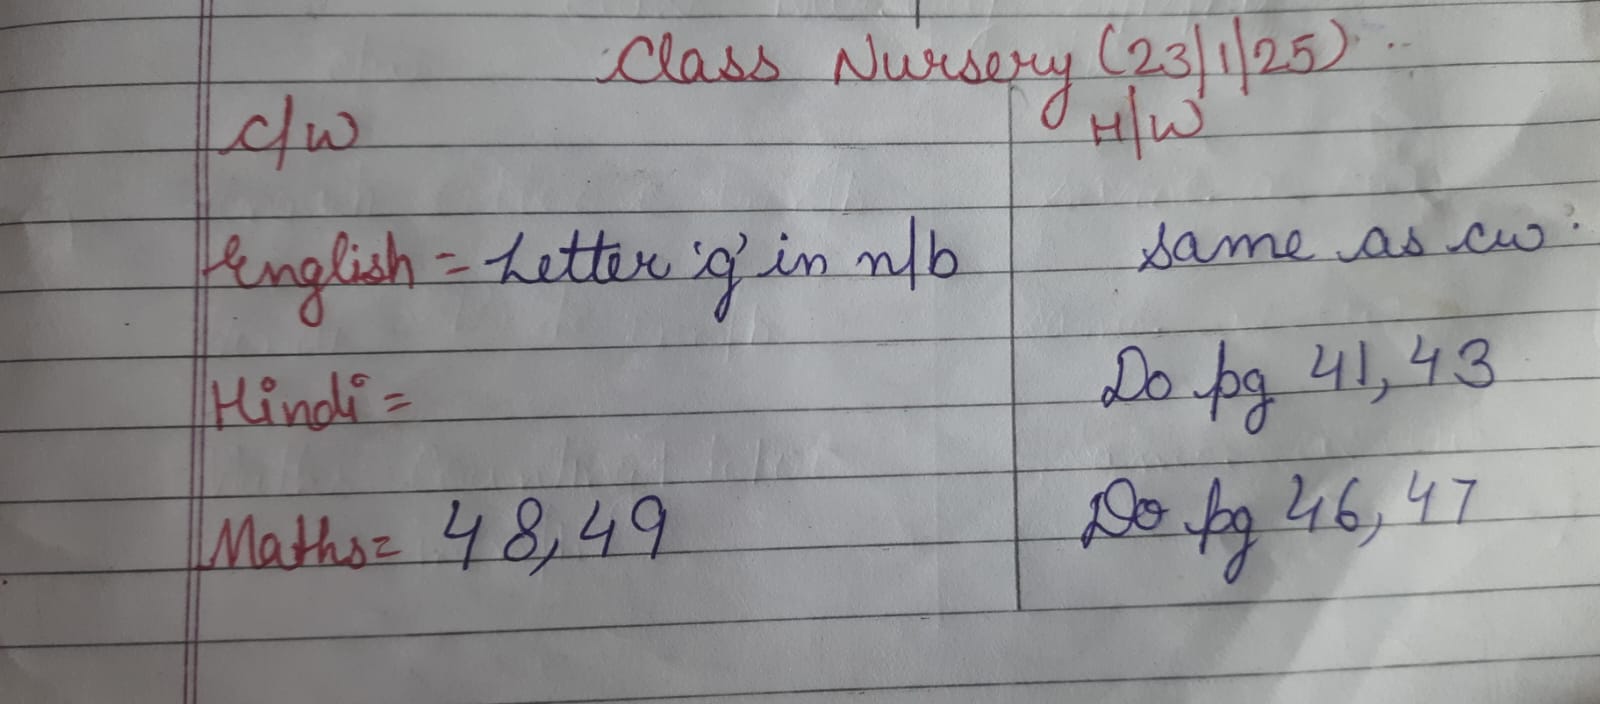 Class Nursery (23/1/25)
C/W H/W
English = Letter 'g' in n/b same as cw.
Hindi = Do pg 41, 43
Maths = 48, 49 Do pg 46, 47